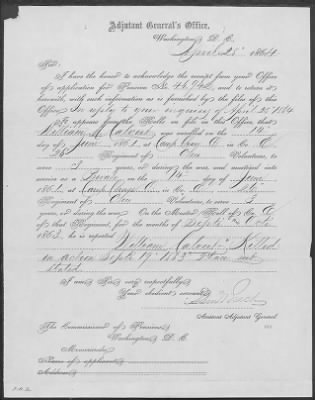 Adjutant General's Office,
Washington, D. C.
April 25" 1864
Sir:
I have the honor to acknowledge the receipt from your Office
of application for Pension No. 46,942, and to return it
herewith, with such information as is furnished by the files of this
Office in reply to your inquiry of April 25 1864
It appears from the Rolls on file in this Office, that
William Calvert was enrolled on the 14"
day of June 1861, at Camp Chase O. in Co. E
26 Regiment of Ohio Volunteers, to
serve 3 years, or during the war, and mustered into
service as a Private on the 14" day of June
1861, at Camp Chase O. in Co. E
Regiment of Ohio Volunteers, to serve 3
years, or during the war. On the Muster Roll of Co. E
of that Regiment, for the months of Sept & Oct
1863, he is reported
"William Calvert" Killed
in action Sept 19" 1863 Place not
stated
I am, Sir, very respectfully,
Your obedient servant,
Assistant Adjutant General
The Commissioner of Pensions,
Washington, D. C.
Memoranda:
Name of applicant
Address